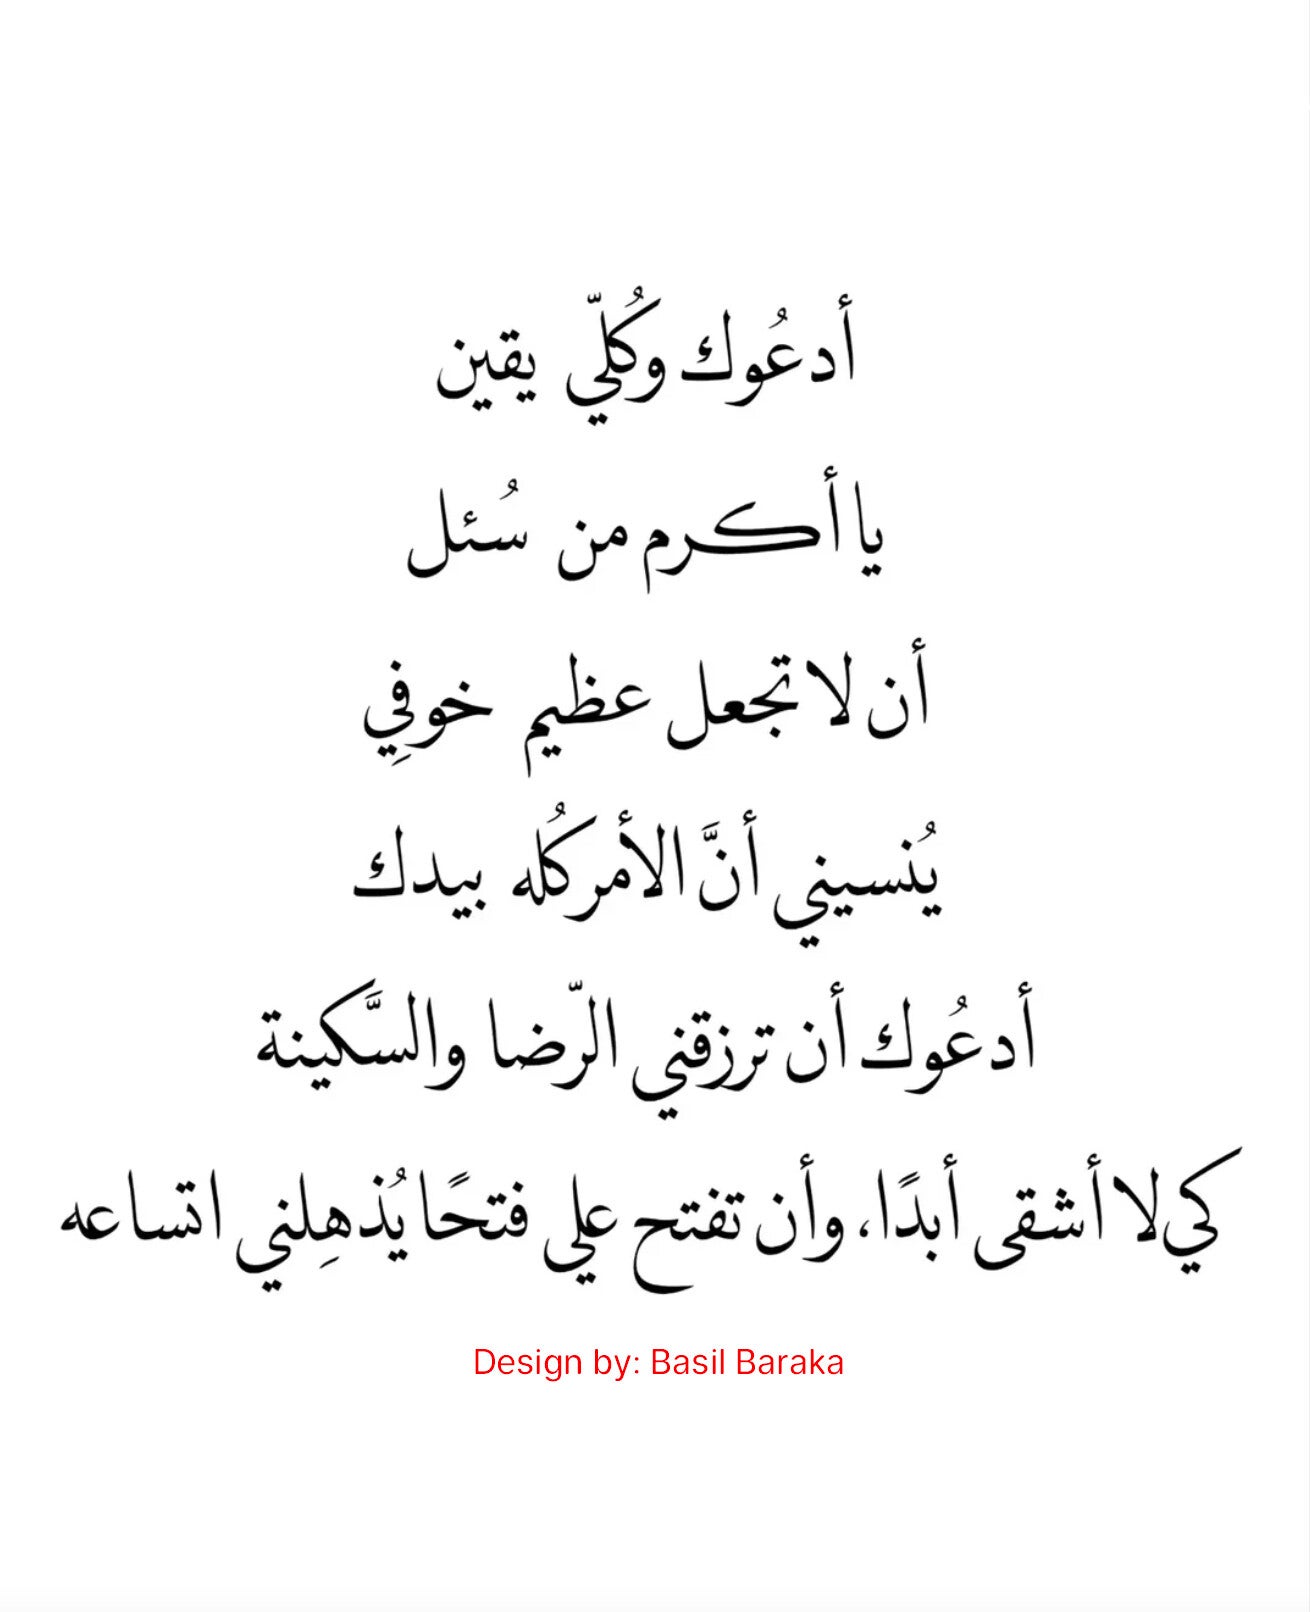 أدعُوك وكُلّي يقين
يا أكرم من سُئل
أن لا تجعل عظيم خوفِي
يُنسيني أنَّ الأمر كُله بيدك
أدعُوك أن ترزقني الرّضا والسَّكينة
كي لا أشقى أبدًا، وأن تفتح علي فتحًا يُذهِلني اتساعه
Design by: Basil Baraka